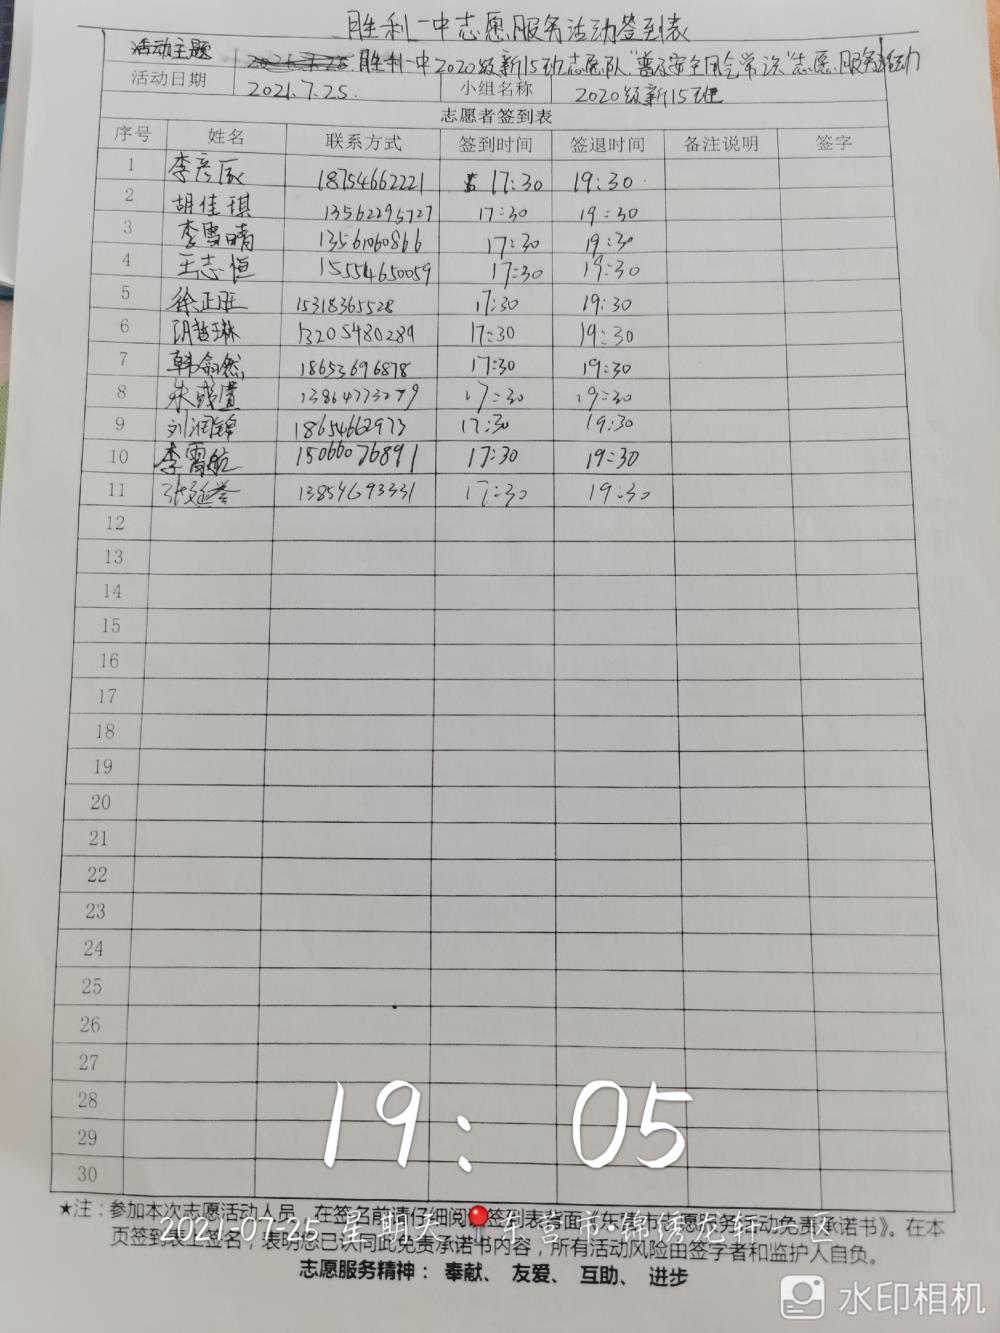 胜利一中志愿服务活动签到表
活动主题 胜利一中2020级新15班志愿队"普及安全用气常识"志愿服务活动
活动日期 2021.7.25. 小组名称 2020级新15班
志愿者签到表
序号 姓名 联系方式 签到时间 签退时间 备注说明 签字
1 李彦辰 18754662221 17:30 19:30
2 胡佳琪 13562295727 17:30 19:30
3 李雪晴 13561060866 17:30 19:30
4 王志恒 15554650059 17:30 19:30
5 徐正旺 15318365528 17:30 19:30
6 阴哲琳 13205480289 17:30 19:30
7 韩 然 18653696878 17:30 19:30
8 朱 萱 13864773279 17:30 19:30
9 刘润锦 18654662973 17:30 19:30
10 李霄航 15066076891 17:30 19:30
11 张延誉 13854693331 17:30 19:30
12
13
14
15
16
17
18
19
20
21
22
23
24
25
26
27
28
29
30
19:05
★注:参加本次志愿活动人员,在签名前请仔细阅读签到表背面《东营市志愿服务活动免责承诺书》。在本
2021-07-25 星期天 东营市·锦绣龙轩一区
页签到表上签名,表明您已认同此免责承诺书内容,所有活动风险由签字者和监护人自负。
志愿服务精神: 奉献、 友爱、 互助、 进步
水印相机